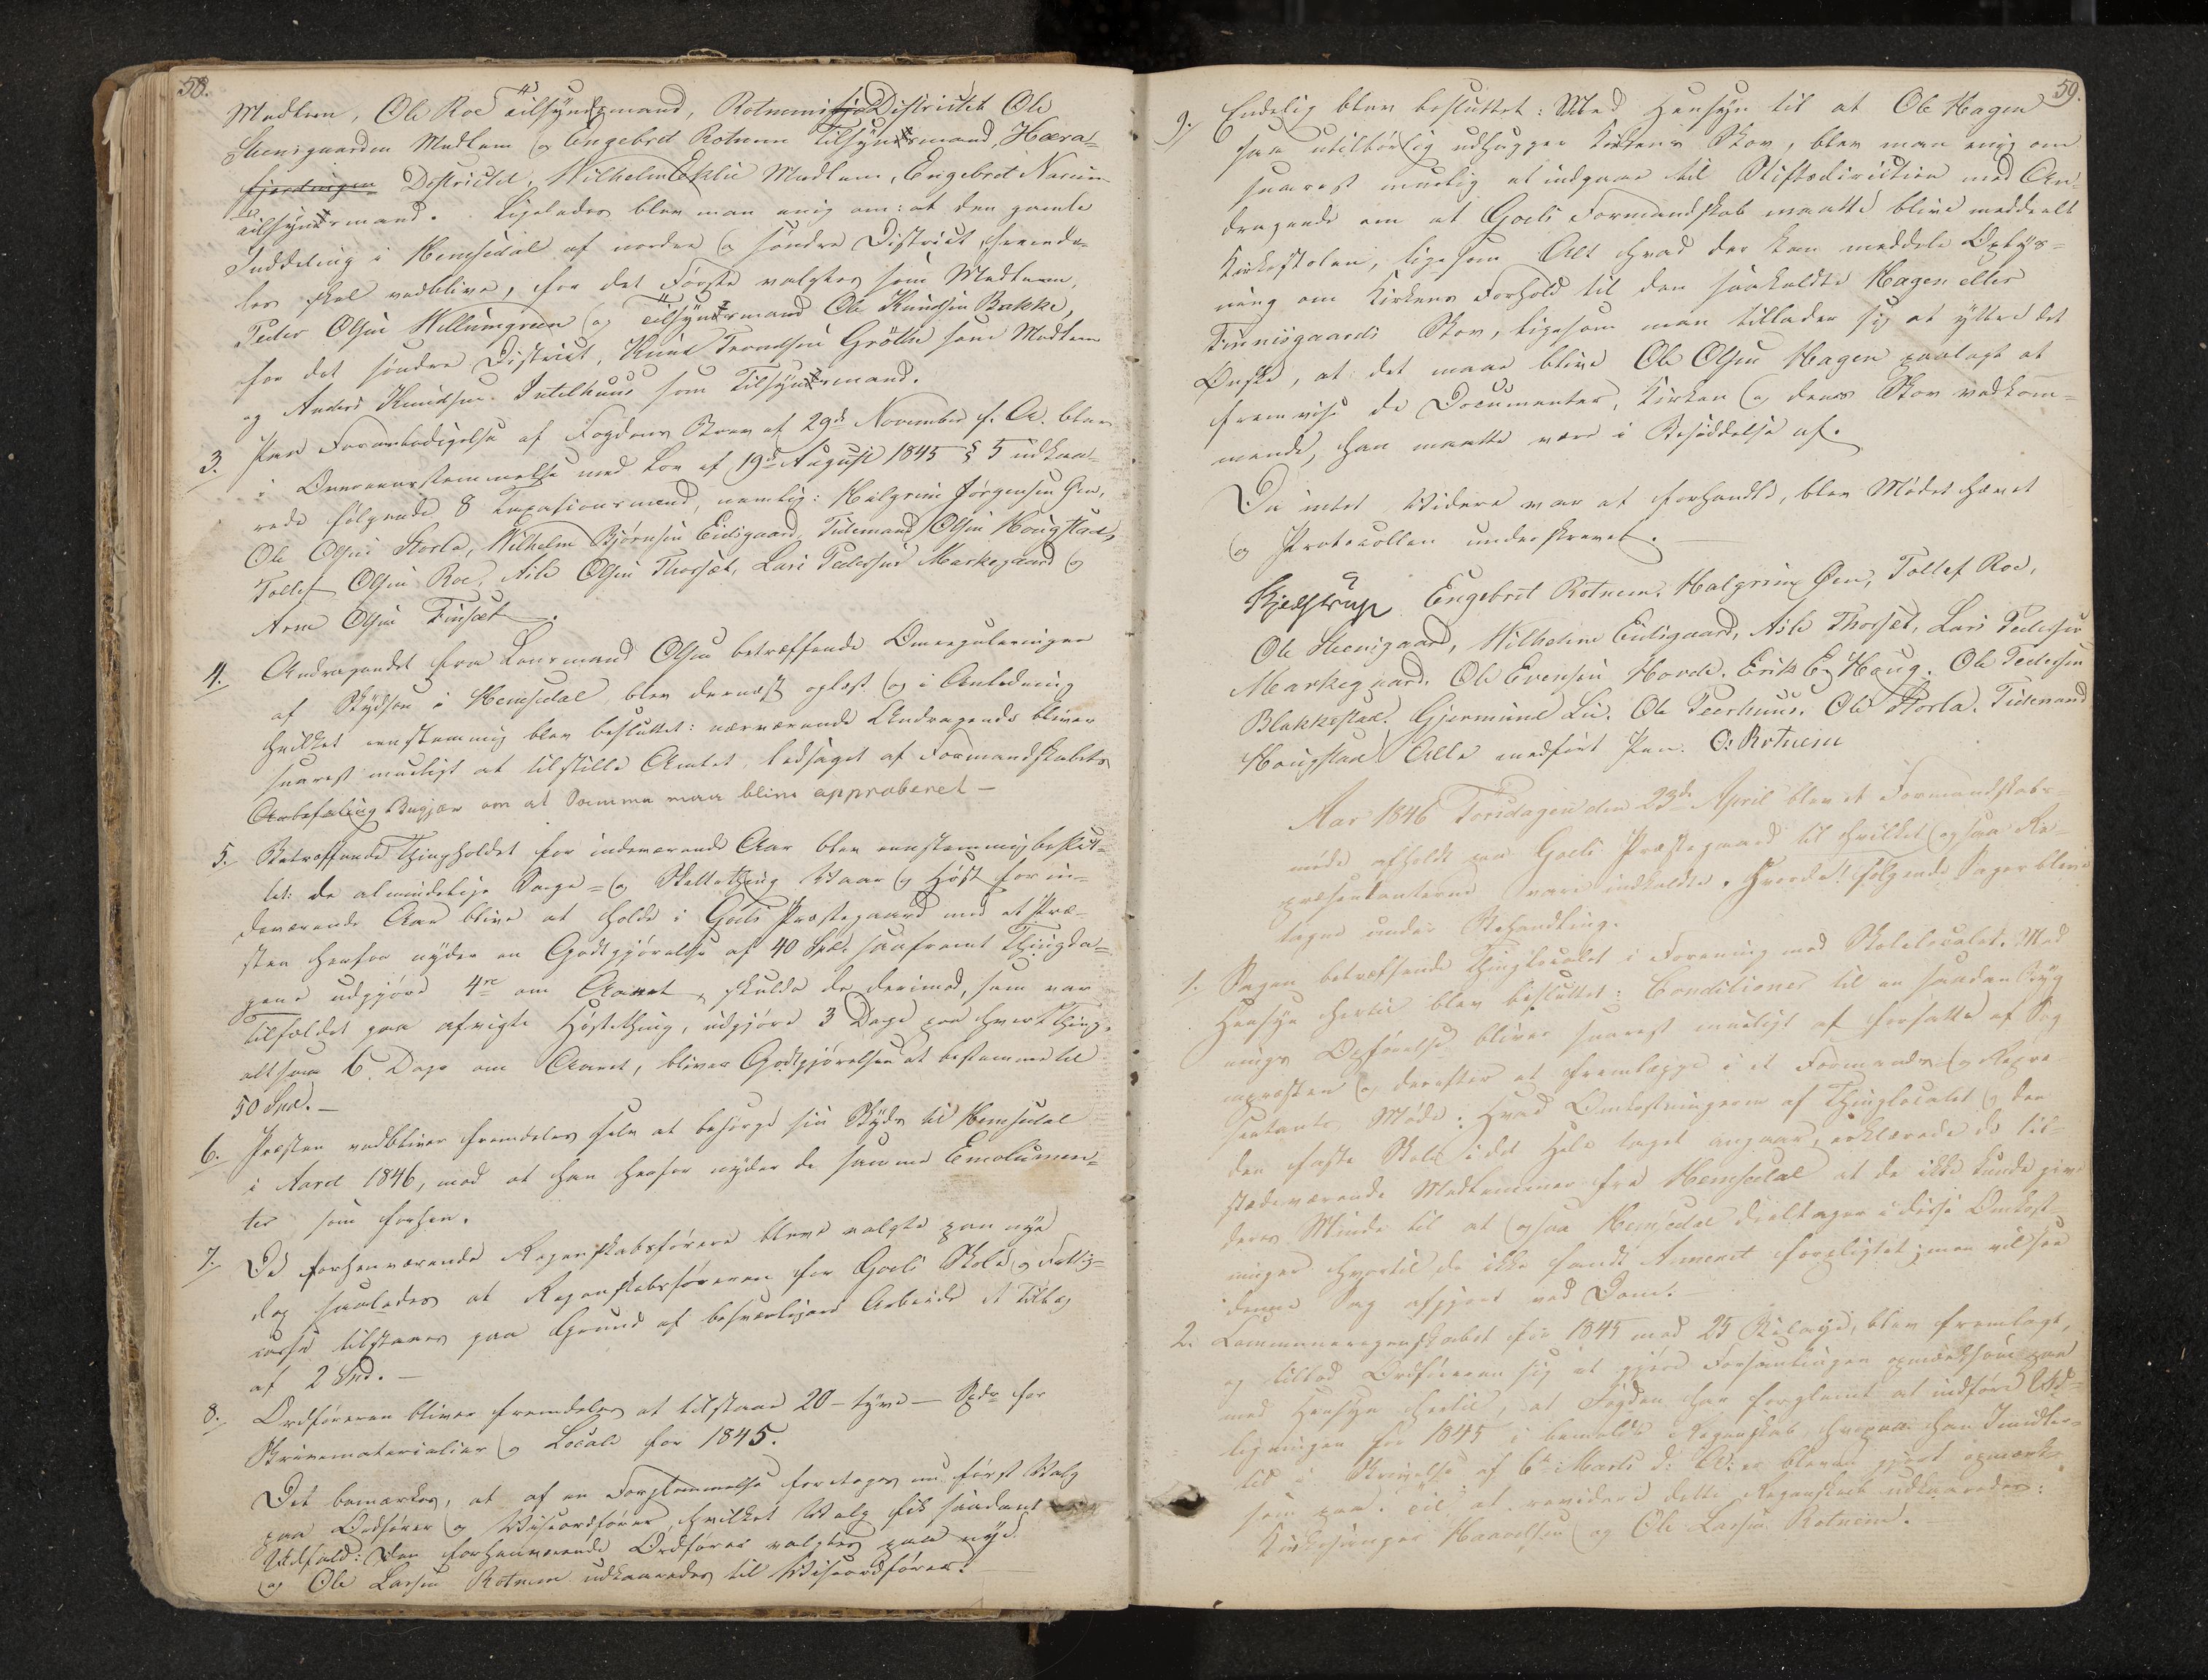 58.
Medlem, Ole Roe Tilsynsmand, Rotneims Districtet Ole
Steensgaarden Medlem og Engebret Rotneim Tilsynsmand, Hæra-
fjerdingen Districtet, Wilhelm Medlem, Engebret
Tilsynsmand. Ligeledes blev man enig om: at den gamle
Inddeling i Hemsedal af nordre og søndre District, fremde-
les skal vedblive, for det Første valgtes som Medlem,
Peder Olsen og Tilsynsmand Ole Knudsen Bakke,
for det søndre District, Knud Trondsen Grøthe som Medlem
og Anders Knudsen som Tilsynsmand.
3. Paa Foranledigelse af Fogdens Brev af 29de November f. A. blev
i Overeensstemmelse med Lov af 19de August 1845 § 5 udkaa-
rede følgende 8 Taxasionsmænd, nemlig: Halgrim Jørgensen Øen,
Ole Olsen Storla, Wilhelm Bjørnsen Eidsgaard, Tidemand Olsen Hougstad,
Tollef Olsen Roe, Asle Olsen Thorset, Lars Pedersen Markegaard og
Arne Olsen Finset.
4. Andragendet fra Lensmand Olsen betræffende Omreguleringen
af Skydsen i Hemsedal blev dernæst oplæst og i Anledning
hvilket eenstemmig blev besluttet: nærværende Andragende bliver
snarest mueligt at tilstille Amtet, ledsaget af Formandskabets
Anbefaling Begjær om at Samme maa blive approberet —
5. Betræffende Thingholdet for indeværende Aar blev eenstemmig beslut-
tet: de almindelige Sage- og Skattething Vaar og Høst for in-
deværende Aar blive at holde i Goels Præstegaard mod at Præ-
sten herfor nyder en Godtgjørelse af 40 Spd. saafremt Thingda-
gene udgjøre 4re om Aaret, skulde de derimod, som var
Tilfældet paa afvigte Høstething, udgjøre 3 Dage paa hvert Thing,
altsaa 6 Dage om Aaret, bliver Godtgjørelsen at bestemme til
50 Spd. —
6. Præsten vedbliver fremdeles selv at besørge sin Skyds til Hemsedal
i Aaret 1846, mod at han herfor nyder de samme Emolumen-
ter som forhen.
7. De forhenværende Regnskabsførere bleve valgte paa nye
dog saaledes at Regnskabsføreren for Goels Skole og Fattig-
casse tilstaaes paa Grund af besværligere Arbeide et Tillæg
af 2 Spd. —
8. Ordføreren bliver fremdeles at tilstaae 20 — tyve — Spdr for
Skrivematerialier og Locale for 1845.
Det bemærkes, at af en Forglemmelse foretoges nu først Valg
paa Ordfører og Viseordfører, hvilket Valg fik saadant
Udfald: Den forhenværende Ordfører valgtes paa nye
og Ole Larsen Rotneim udkaaredes til Viseordfører.
59.
9. Endelig blev besluttet: Med Hensyn til at Ole Hagen
saa utilbørlig udhugger Kirkens Skov, blev man enig om
snarest muelig at indgaae til Stiftsdirectionen med An-
dragende om at Goels Formandskab maatte blive meddeelt
Kirkestolen, ligesom Alt hvad der kan meddele Oplys-
ning om Kirkens Forhold til den saakaldte Hagen eller
Skov, ligesom man tillader sig at yttre det
Ønske, at det maae blive Ole Olsen Hagen paalagt at
fremvise de Documenter, Kirken og dens Skov vedkom-
mende, han maatte være i Besiddelse af.
Da intet Videre var at forhandle, blev Mødet hævet
og Protocollen underskrevet. —
Kjelstrup Engebret Rotneim. Halgrim Øen, Tollef Roe,
Ole Steensgaard, Wilhelm Eidsgaard, Asle Thorset, Lars Pedersen
Markegaard. Ole Evensen Hovde. Erik E. Houg. Ole Pedersen
Blakkestad. Gjermund Lie. Ole Peershuus. Ole Storla. Tidemand
Hougstad Alle medført Pen. O: Rotneim
Aar 1846 Torsdagen den 23de April blev et Formandskabs-
møde afholdt paa Goels Præstegaard til hvilket ogsaa Re-
præsentanterne vare indkaldte. Hvorda følgende Sager bleve
tagne under Behandling.
1. Sagen betræffende Thinglocalet i Forening med Skolelocalet. Med
Hensyn hertil blev besluttet: Conditioner til en saadan Byg-
nings Opførelse bliver snarest mueligt at forfatte af Sog-
nepræsten og derefter at fremlægge i et Formands og Repræ-
sentants Møde. Hvad Omkostningerne af Thinglocalet og den
den faste Skole i det Hele taget angaaer, erklærede de til-
stædeværende Medlemmer fra Hemsedal at de ikke kunde give
deres Minde til at ogsaa Hemsedal deeltager i disse Omkost-
ninger hvortil de ikke fandt Annexet forpligtet; men vil see
denne Sag afgjort ved Dom.
2. Communeregnskabet for 1845 med 25 Bilage, blev fremlagt,
og tillod Ordføreren sig at gjøre Forsamlingen opmærksom paa
med Hensyn hertil, at Fogden har forglemt at indføre Ud-
ligningen for 1845 i bemeldte Regnskab, hvorpaa han Imidler-
tid i Skrivelse af 6te Marts d: A: er bleven gjort opmærk-
som paa. Til at revidere dette Regnskab udkaaredes:
Kirkesanger Haavelsen og Ole Larsen Rotneim.